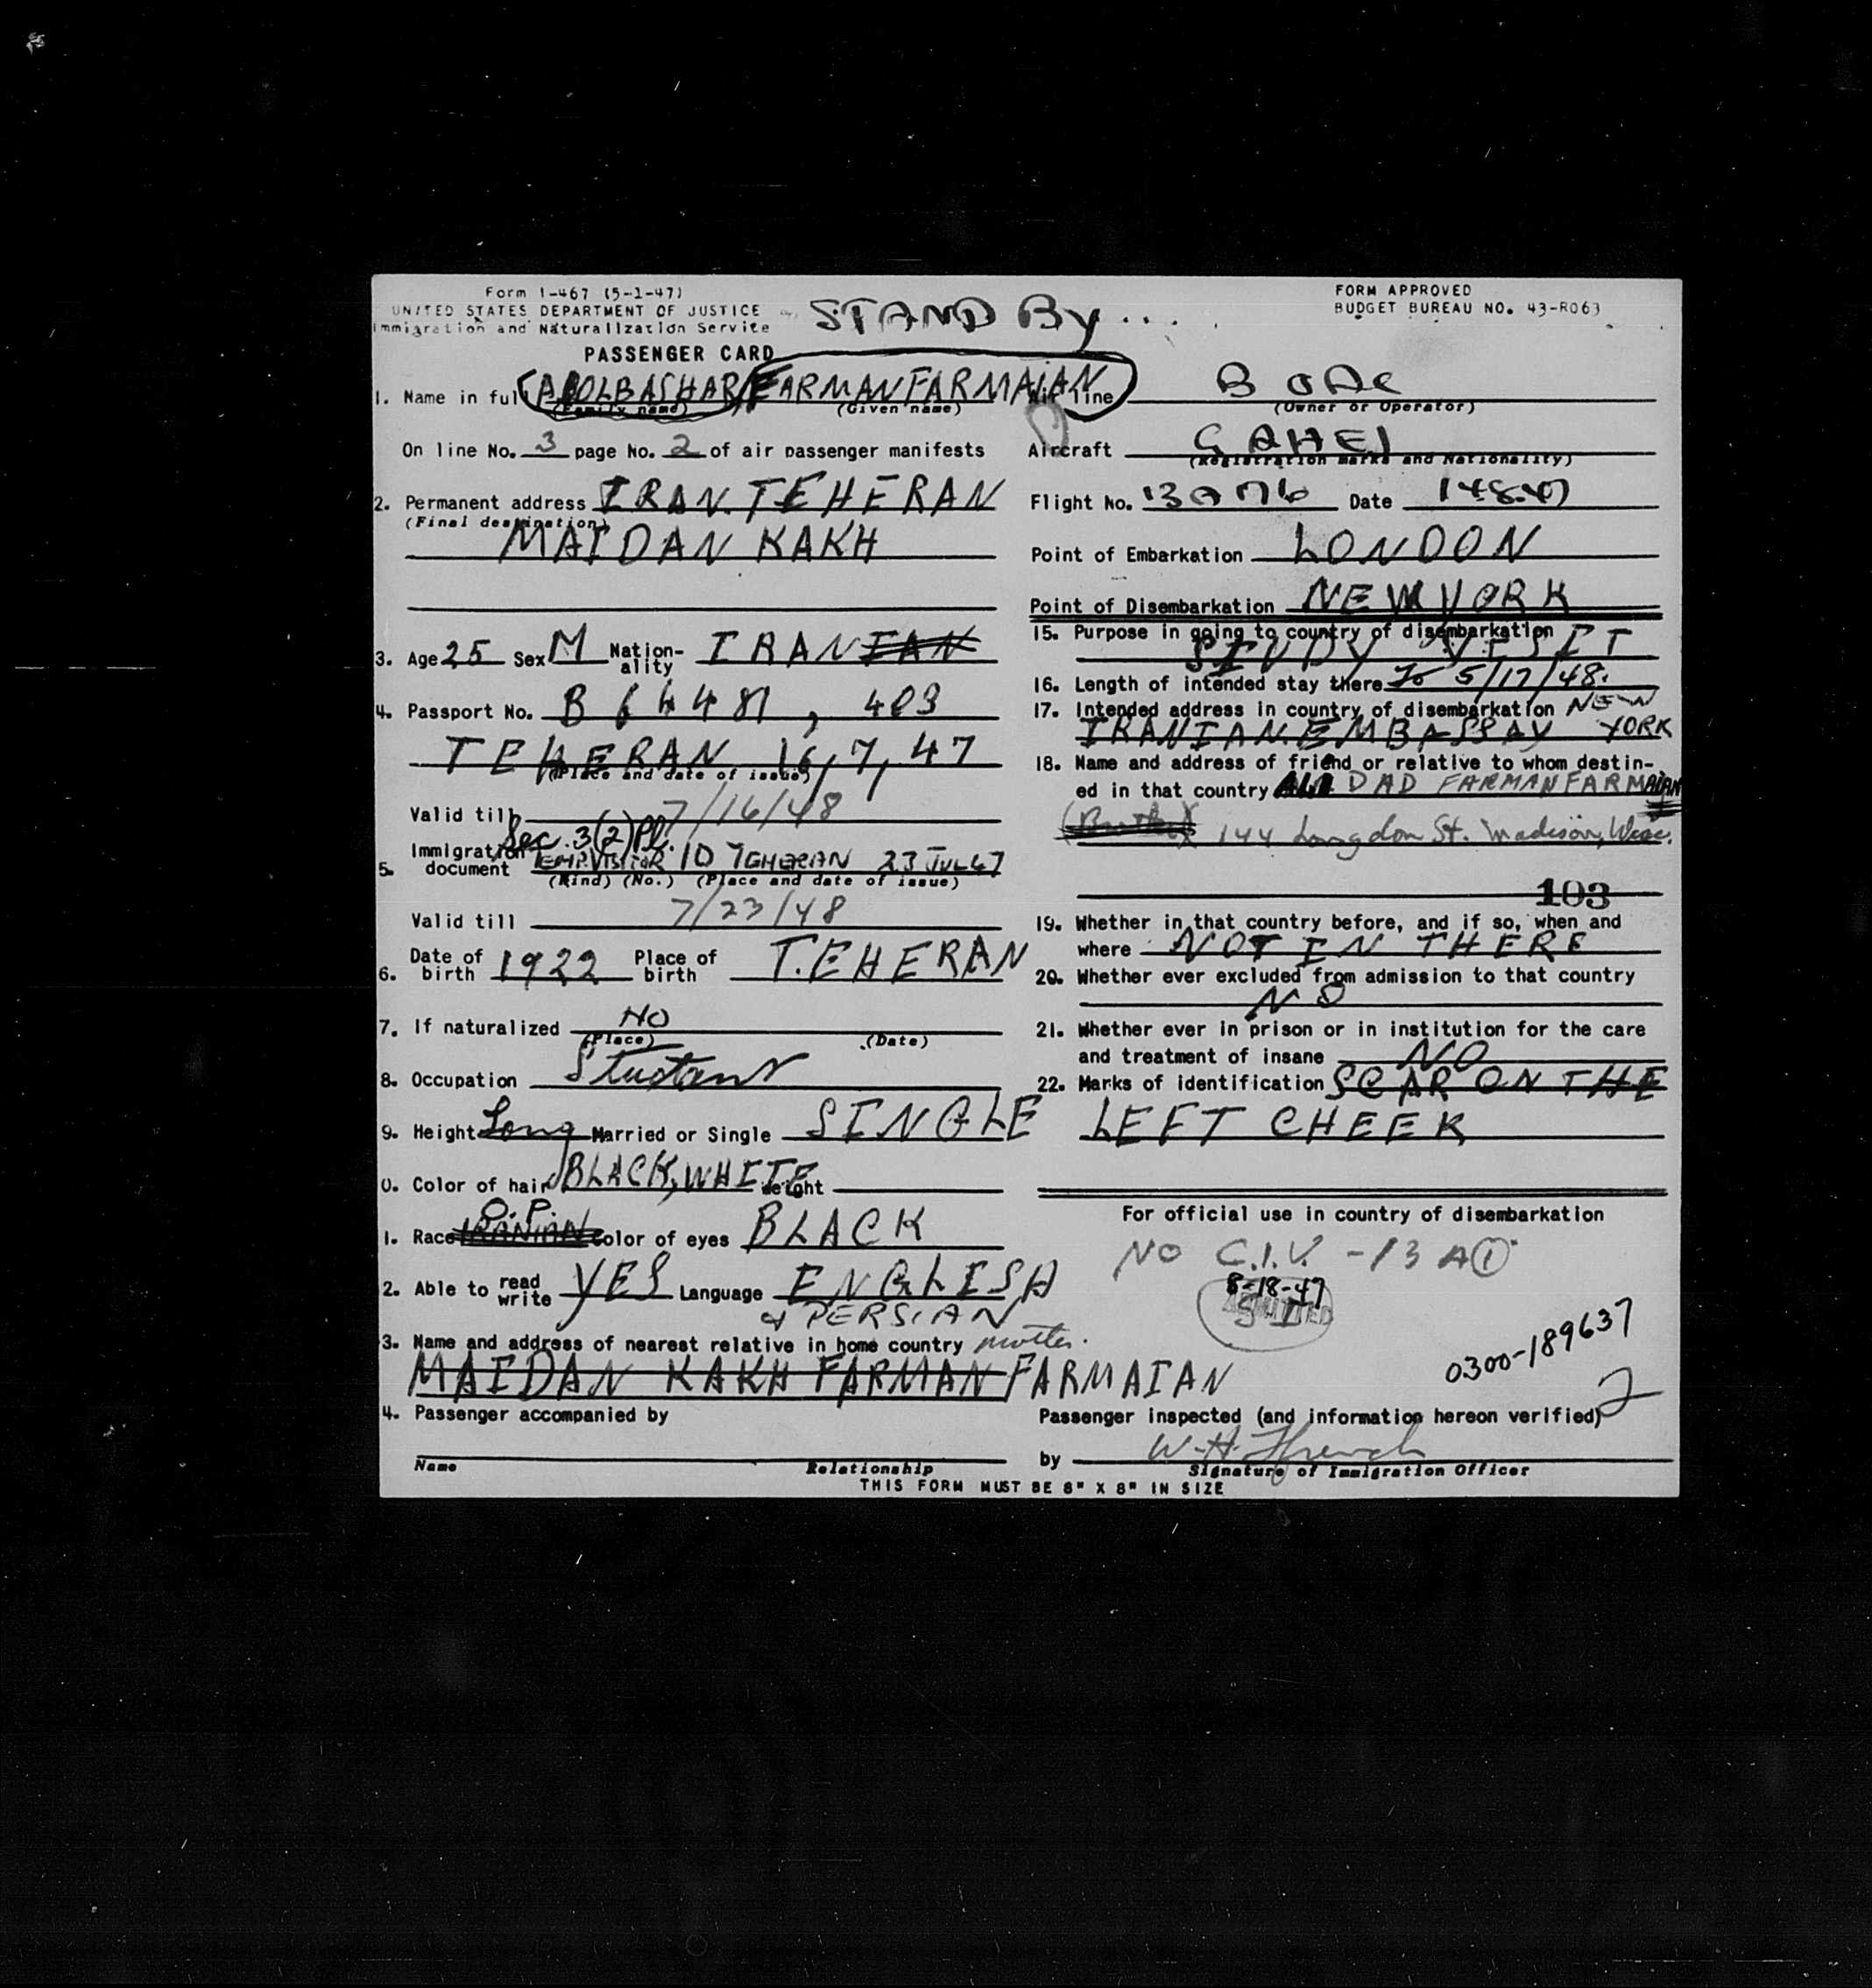 Form I-467 (5-1-47)
UNITED STATES DEPARTMENT OF JUSTICE
Immigration and Naturalization Service
STAND By...
FORM APPROVED
BUDGET BUREAU NO. 43-R063
PASSENGER CARD
1. Name in full ABOLBASHAR, FARMANFARMAIAN
(Family name) (Given name)
On line No. 3 page No. 2 of air passenger manifests
2. Permanent address IRAN. TEHERAN
(Final destination)
MAIDAN KAKH
3. Age 25 Sex M Nation-ality IRANIAN
4. Passport No. B 64481, 403
TEHERAN 16, 7, 47
(Place and date of issue)
Valid till 7/16/48
Sec. 3(2) Pl.
5. Immigration document TEMP. VISITOR 10 TEHERAN 23 JUL 47
(Kind) (No.) (Place and date of issue)
Valid till 7/23/48
6. Date of birth 1922 Place of birth TEHERAN
7. If naturalized NO
(Place) (Date)
8. Occupation Student
9. Height Long Married or Single SINGLE
0. Color of hair BLACK, WHITE Weight
O.P.
1. Race IRANIAN Color of eyes BLACK
2. Able to read write YES Language ENGLISH
& PERSIAN
3. Name and address of nearest relative in home country mother.
MAIDAN KAKH FARMANFARMAIAN
4. Passenger accompanied by
Name Relationship
Air line BOAC
(Owner or Operator)
Aircraft G AHEJ
(Registration marks and Nationality)
Flight No. Date 14.8.47
Point of Embarkation LONDON
Point of Disembarkation NEW YORK
15. Purpose in going to country of disembarkation
STUDY VISIT
16. Length of intended stay there To 5/17/48.
17. Intended address in country of disembarkation NEW
IRANIAN EMBASSAY YORK
18. Name and address of friend or relative to whom destin-
ed in that country DAD FARMANFARMAIAN
(Brother) 144 Langdon St. Madison, Wisc.
103
19. Whether in that country before, and if so, when and
where NOT IN THERE
20. Whether ever excluded from admission to that country
NO
21. Whether ever in prison or in institution for the care
and treatment of insane NO
22. Marks of identification SCAR ON THE
LEFT CHEEK
For official use in country of disembarkation
NO C.I.V. -13 A 1
8-18-47
ADMITTED
0300-189637
2
Passenger inspected (and information hereon verified)
by W.H. French
Signature of Immigration Officer
THIS FORM MUST BE 8" X 8" IN SIZE